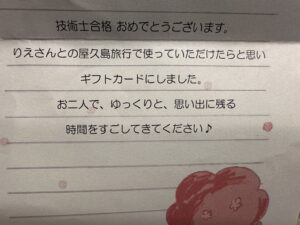 技術士合格 おめでとうございます。
りえさんとの屋久島旅行で使っていただけたらと思い
ギフトカードにしました。
お二人で、ゆっくりと、思い出に残る
時間をすごしてきてください♪